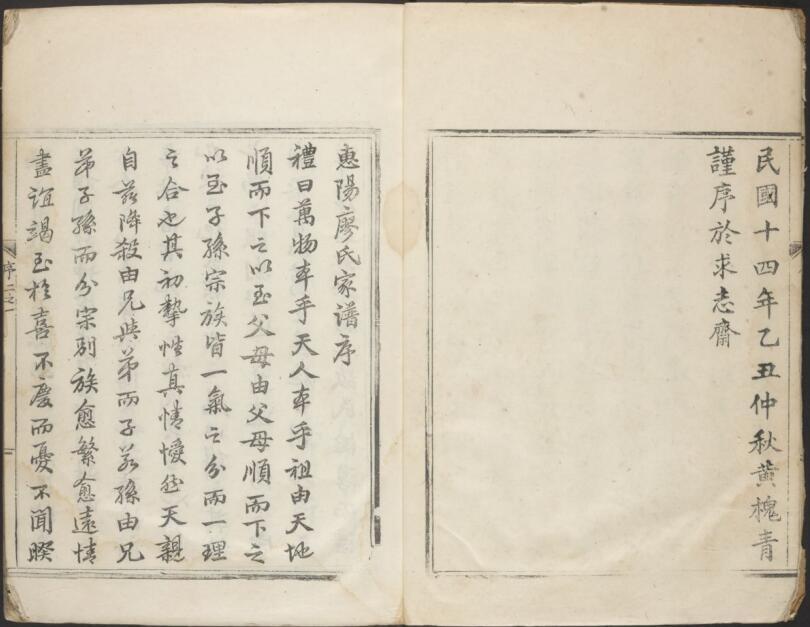 民國十四年乙丑仲秋黃槐青
謹序於求志齋
惠陽廖氏家譜序
禮曰萬物本乎天人本乎祖由天地
順而下之以至父母由父母順而下之
以至子孫宗族皆一氣之分而一理
之合也其初摯性真情懓然天親
自茲降殺由兄與弟而子若孫由兄
弟子孫而分宗別族愈繁愈遠情
盡誼竭至於喜不慶而憂不聞睽
序二之一